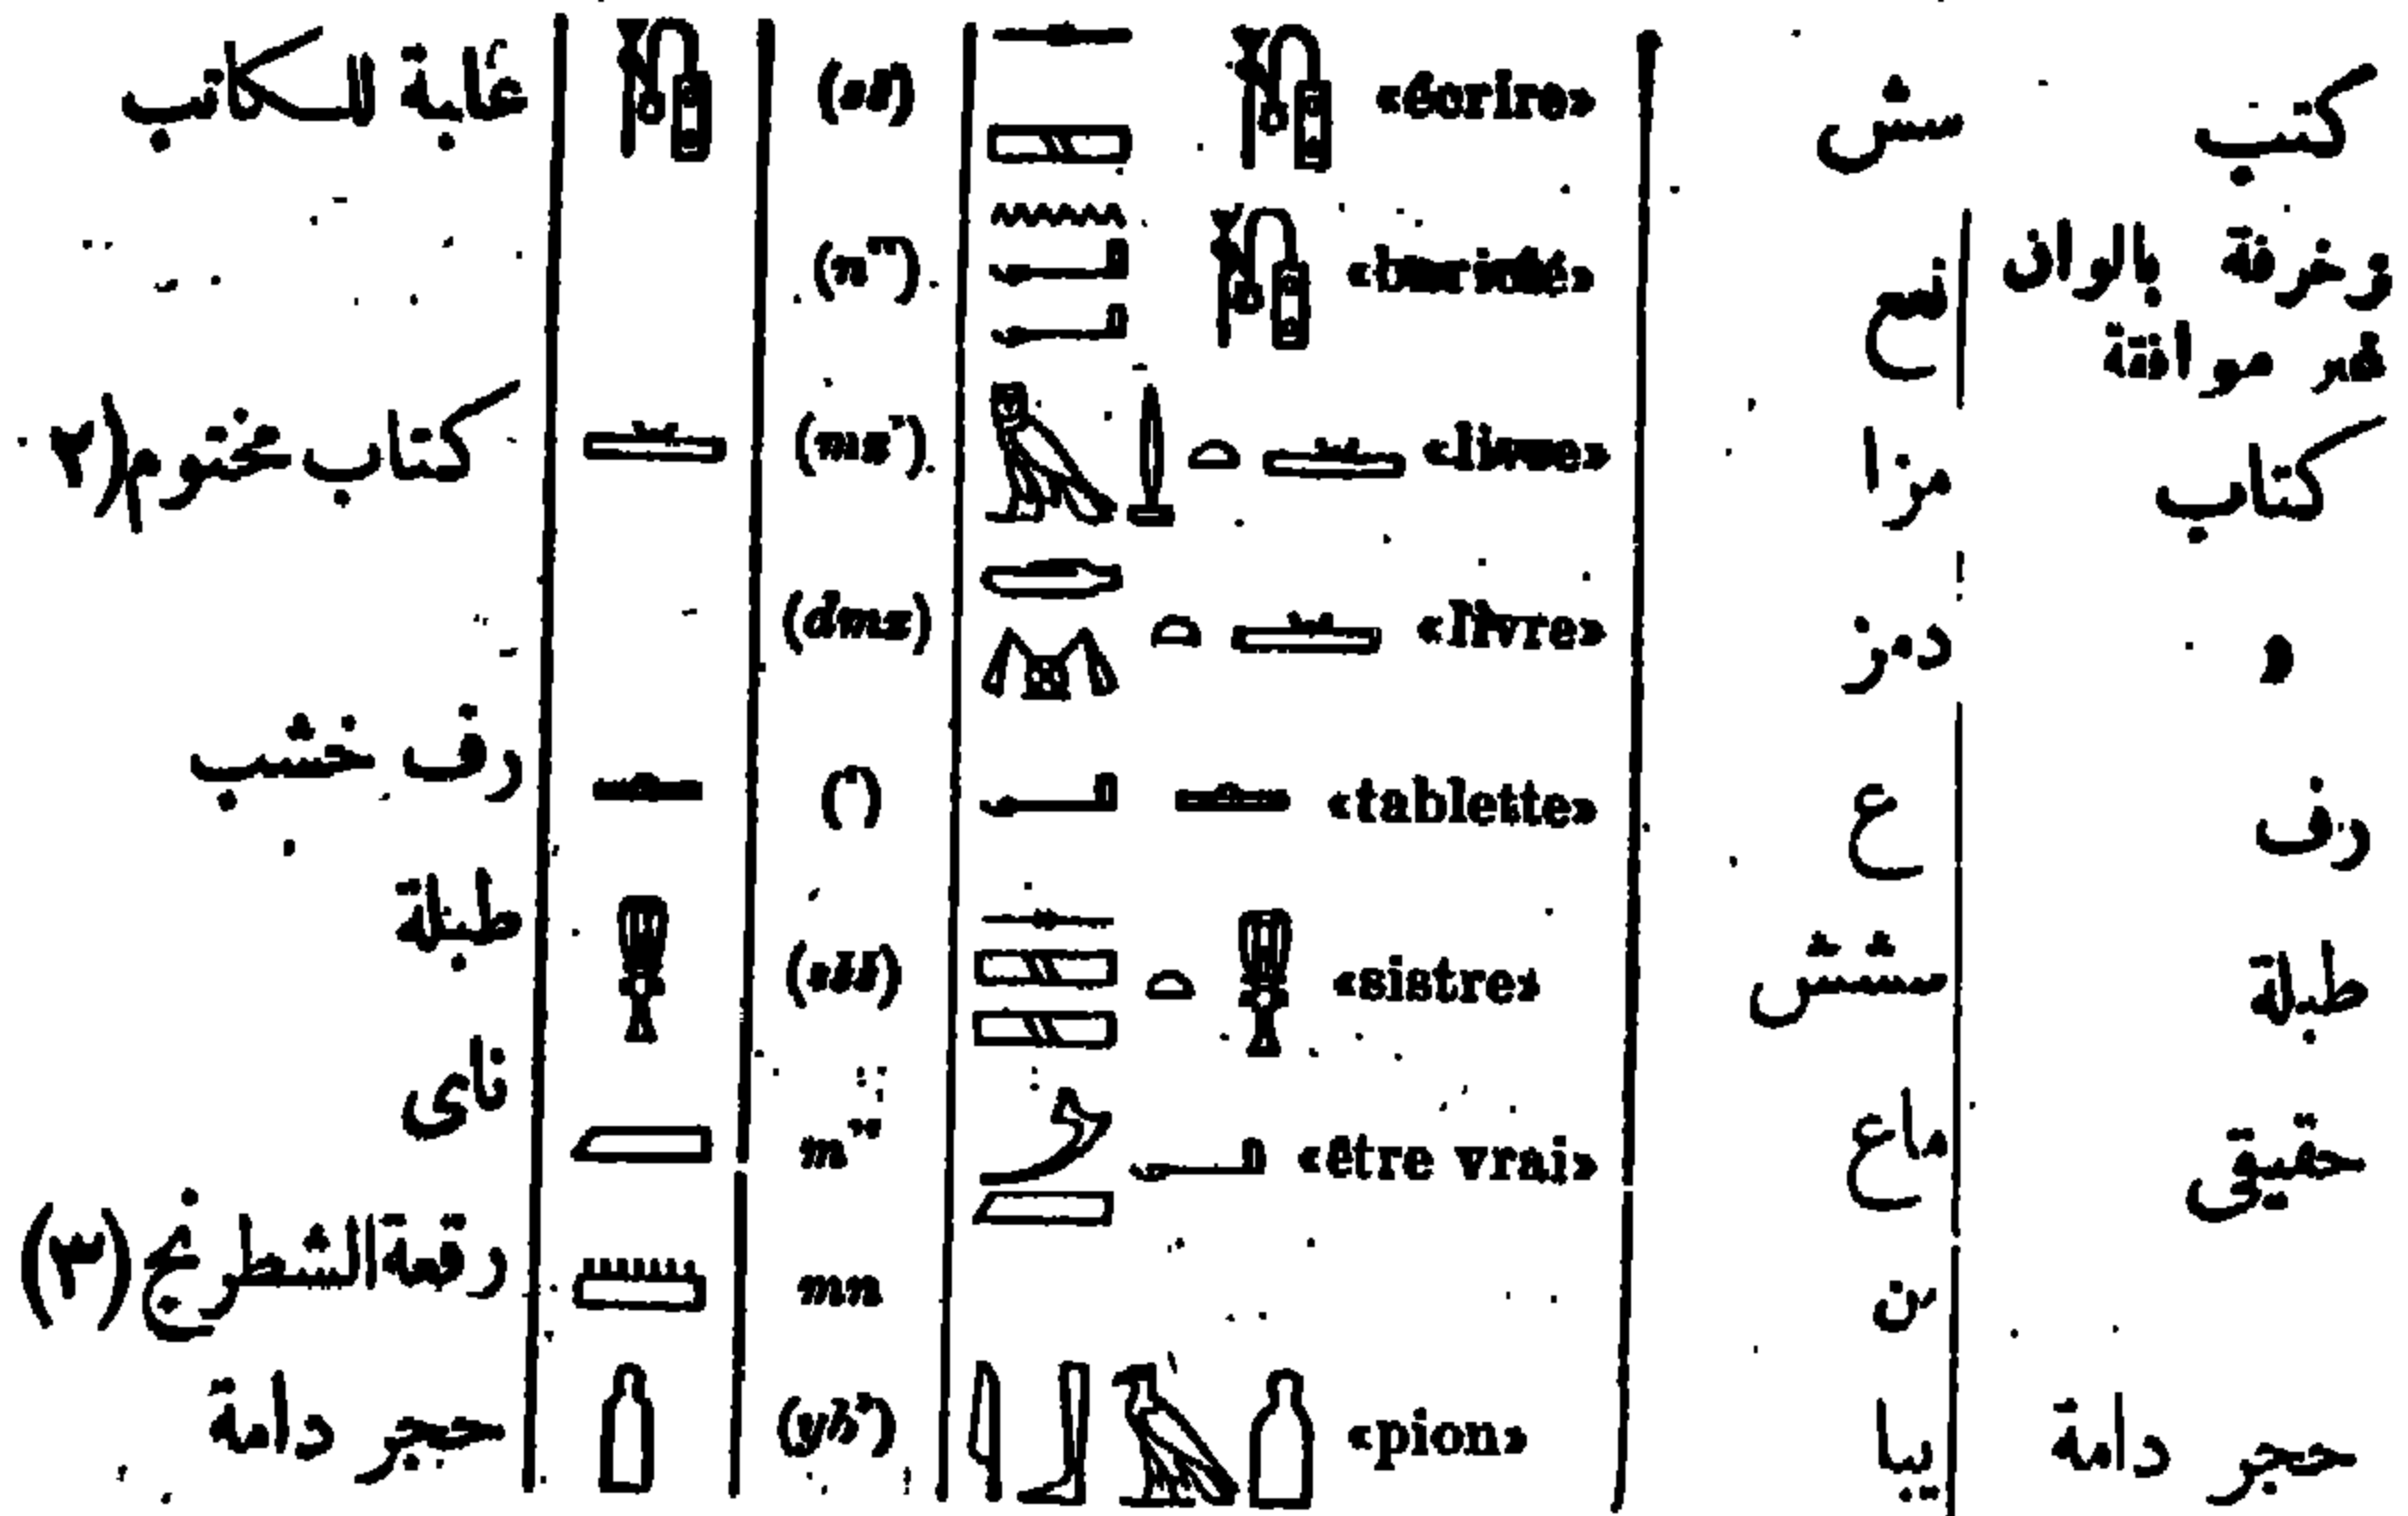 علبة الكاتب (sš) «écrire» سش كتب
(nʿʿ) «bariolé» نعع زخرفة بالوان
غير موافقة
كتاب مختوم (٢ (mzʾ) «livre» مزا كتاب
(dmz) «livre» دمز »
رف خشب (ʿ) «tablette» ع رف
طبلة (sšš) «sistre» سشش طبلة
ناى mʾʿ «être vrai» ماع حقيقى
رقعة الشطرنج (٣) mn من
حجر دامة (ybʾ) «pion» يبا حجر دامة